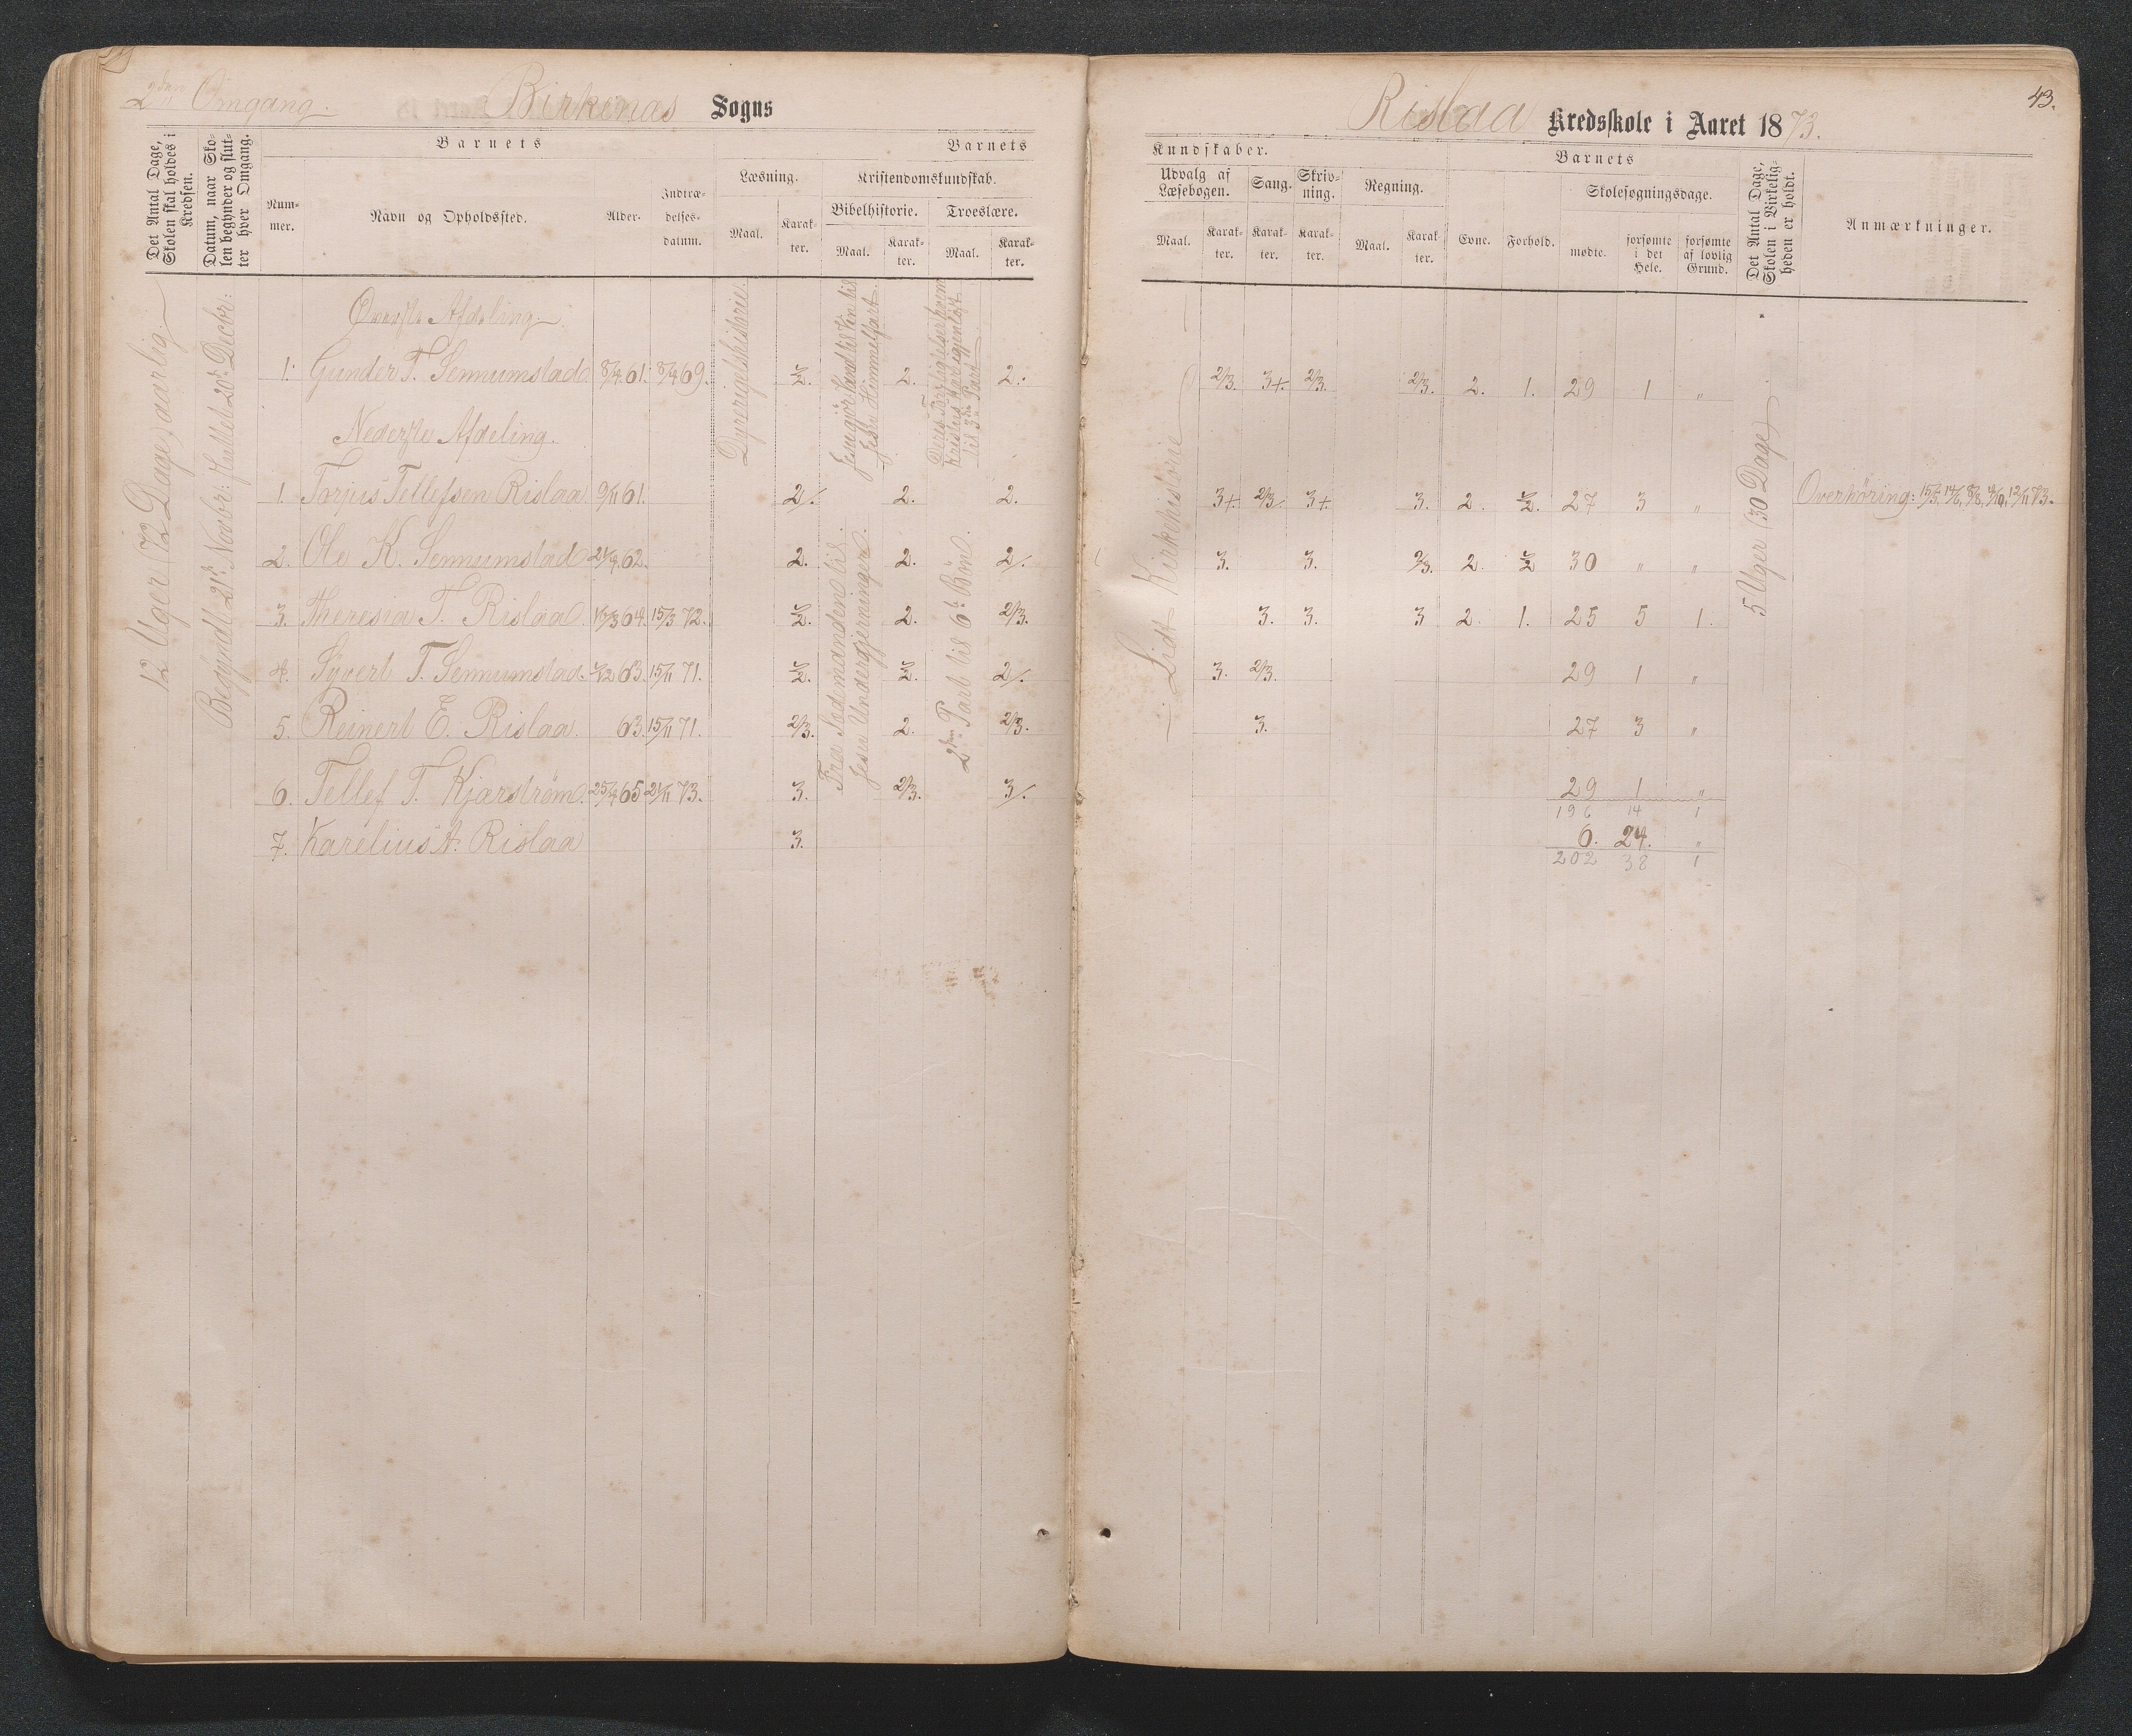 2den Omgang.
Birkenæs Sogns
Det Antal Dage, Skolen skal holdes i Kredsen.
Datum, naar Skolen begynder og slutter hver Omgang.
Barnets
Nummer.
Navn og Opholdssted.
Alder.
Indtrædelses-datum.
Barnets
Læsning.
Maal.
Karakter.
Kristendomskundskab.
Bibelhistorie.
Maal.
Karakter.
Troeslære.
Maal.
Karakter.
12 Uger (72 Dage) aarlig.
Begyndt 21de Novbr: sluttet 20de Decbr:
Øverste Afdeling.
1. Gunder T. Sennumstad. 8/4 61. 8/4 69. 1/2. 2. 2.
Nederste Afdeling.
1. Torjus Tellefsen Rislaa 9/11 61. 2/. 2. 2.
2. Ole K. Sennumstad 21/9 62. 2. 2. 2/.
3. Theresia T. Rislaa. 64. 15/3 72. 1/2. 2. 2/3.
4. Syvert T. Sennumstad. 63. 15/11 71. 1/2. 1/2. 2/.
5. Reinert E. Rislaa. 63. 15/11 71. 2/3. 2. 2/3.
6. Tellef T. Kjærstrøm. 25/4 65 21/11 73. 3. 2/3. 3/.
7. Karelius A. Rislaa 3.
Dyrerigetshistorie.
Jesu Himmelfart.
Fra Sædemanden til
Jesu Undergjerninger.
til 3die Part
2den Part til 6te Bøn.
Rislaa Kredsskole i Aaret 1873.
43.
Kundskaber.
Udvalg af Læsebogen.
Maal.
Karakter.
Sang.
Karakter.
Skrivning.
Karakter.
Regning.
Maal.
Karakter.
Barnets
Evne.
Forhold.
Skolesøgningsdage.
mødte.
forsømte i det Hele.
forsømte af lovlig Grund.
Det Antal Dage, Skolen i Virkeligheden er holdt.
Anmærkninger.
Lidt Kirkehistorie
5 Uger (30 Dage)
2/3. 3+. 2/3. 2/3. 2. 1. 29 1 "
3+. 2/3/. 3+. 3. 2. 1/2. 27 3 "
Overhøring: 15/5, 14/6, 8/8, 13/11 73.
3. 3. 2/3. 2. 1/2 30 " "
3. 3. 3 2. 1. 25 5 1.
3. 2/3. 29 1 "
3. 27 3 "
29 1 "
196 14 1
6. 24. "
202 38 1